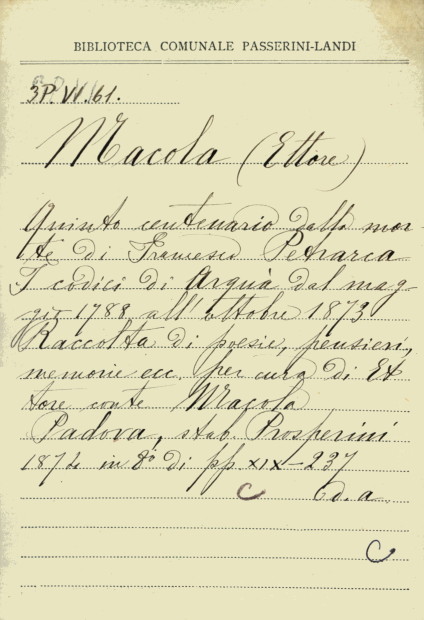 BIBLIOTECA COMUNALE PASSERINI-LANDI
3P. VI. 61.
Macola (Ettore)
Quinto centenario dalla mor-
te di Francesco Petrarca
I codici di Arquà dal mag-
gio 1788 all'ottobre 1873
Raccolta di poesie, pensieri,
memorie ecc. per cura di Et
tore conte Macola
Padova, stab. Prosperini
1874 in 8° di pp. XIX-237
C Ed. a
C